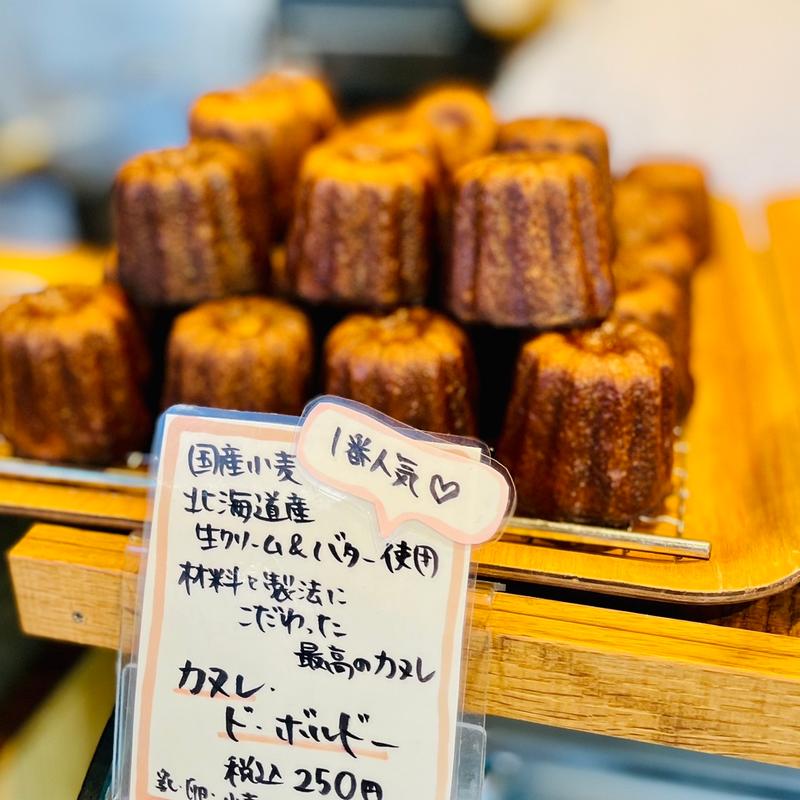 1番人気♡
国産小麦
北海道産
生クリーム&バター使用
材料と製法に
こだわった
最高のカヌレ
カヌレ・
ド・ボルドー
税込250円
乳・卵・小麦